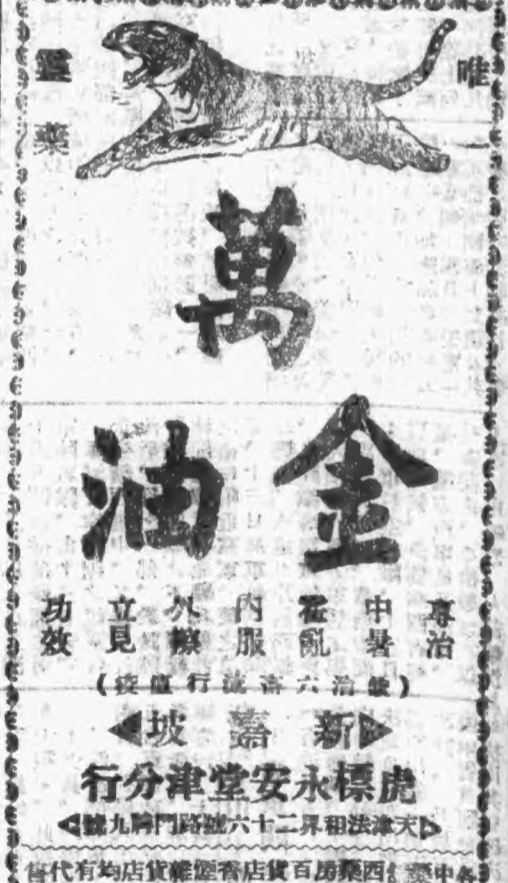 唯一
靈藥
萬
金油
專治 中暑 霍亂 內服 外擦 立見 功效
(治六畜流行瘟疫)
新嘉坡
虎標永安堂津分行
天津法租界二十六號路門牌九號
各中藥西藥房百貨店香煙雜貨店均有代售